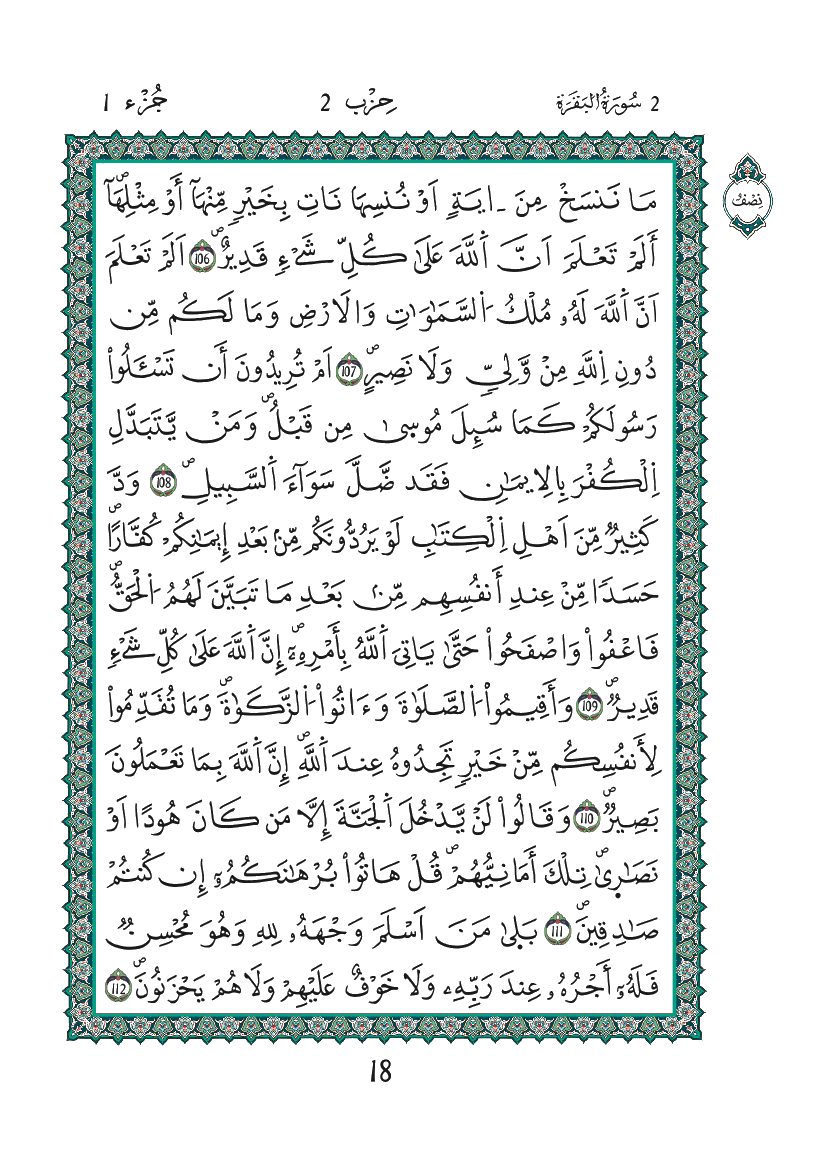 2 سُورَةُ الْبَقَرَةِ حِزْب 2 جُزْء 1
نِصْف
مَا نَنسَخْ مِنَ ـايَةٍ اَوْ نُنسِهَا نَاتِ بِخَيْرٍ مِّنْهَآ أَوْ مِثْلِهَآۖ
أَلَمْ تَعْلَمَ اَنَّ اَ۬للَّهَ عَلَىٰ كُلِّ شَےْءٍ قَدِيرٌۖ 106 اَلَمْ تَعْلَمَ
اَنَّ اَ۬للَّهَ لَهُۥ مُلْكُ اُ۬لسَّمَٰوَٰتِ وَالَارْضِ وَمَا لَكُم مِّن
دُونِ اِ۬للَّهِ مِنْ وَّلِيّٖ وَلَا نَصِيرٍۖ 107 اَمْ تُرِيدُونَ أَن تَسْـَٔلُواْ
رَسُولَكُمْ كَمَا سُئِلَ مُوسىٰ مِن قَبْلُۖ وَمَنْ يَّتَبَدَّلِ
اِ۬لْكُفْرَ بِالِايمَٰنِ فَقَد ضَّلَّ سَوَآءَ اَ۬لسَّبِيلِۖ 108 وَدَّ
كَثِيرٌ مِّنَ اَهْلِ اِ۬لْكِتَٰبِ لَوْ يَرُدُّونَكُم مِّنۢ بَعْدِ إِيمَٰنِكُمْ كُفَّارًاۖ
حَسَدًا مِّنْ عِندِ أَنفُسِهِم مِّنۢ بَعْدِ مَا تَبَيَّنَ لَهُمُ اُ۬لْحَقُّۖ
فَاعْفُواْ وَاصْفَحُواْ حَتَّىٰ يَاتِيَ اَ۬للَّهُ بِأَمْرِهِۦٓۖ إِنَّ اَ۬للَّهَ عَلَىٰ كُلِّ شَےْءٍ
قَدِيرٌۖ 109 وَأَقِيمُواْ اُ۬لصَّلَوٰةَ وَءَاتُواْ اُ۬لزَّكَوٰةَۖ وَمَا تُقَدِّمُواْ
لِأَنفُسِكُم مِّنْ خَيْرٍ تَجِدُوهُ عِندَ اَ۬للَّهِۖ إِنَّ اَ۬للَّهَ بِمَا تَعْمَلُونَ
بَصِيرٌۖ 110 وَقَالُواْ لَنْ يَّدْخُلَ اَ۬لْجَنَّةَ إِلَّا مَن كَانَ هُودًا اَوْ
نَصَٰرِىٰۖ تِلْكَ أَمَانِيُّهُمْۖ قُلْ هَاتُواْ بُرْهَٰنَكُمُۥٓ إِن كُنتُمْ
صَٰدِقِينَۖ 111 بَلىٰ مَنَ اَسْلَمَ وَجْهَهُۥ لِلهِ وَهُوَ مُحْسِنٌ
فَلَهُۥٓ أَجْرُهُۥ عِندَ رَبِّهِۦ وَلَا خَوْفٌ عَلَيْهِمْ وَلَا هُمْ يَحْزَنُونَۖ 112
18